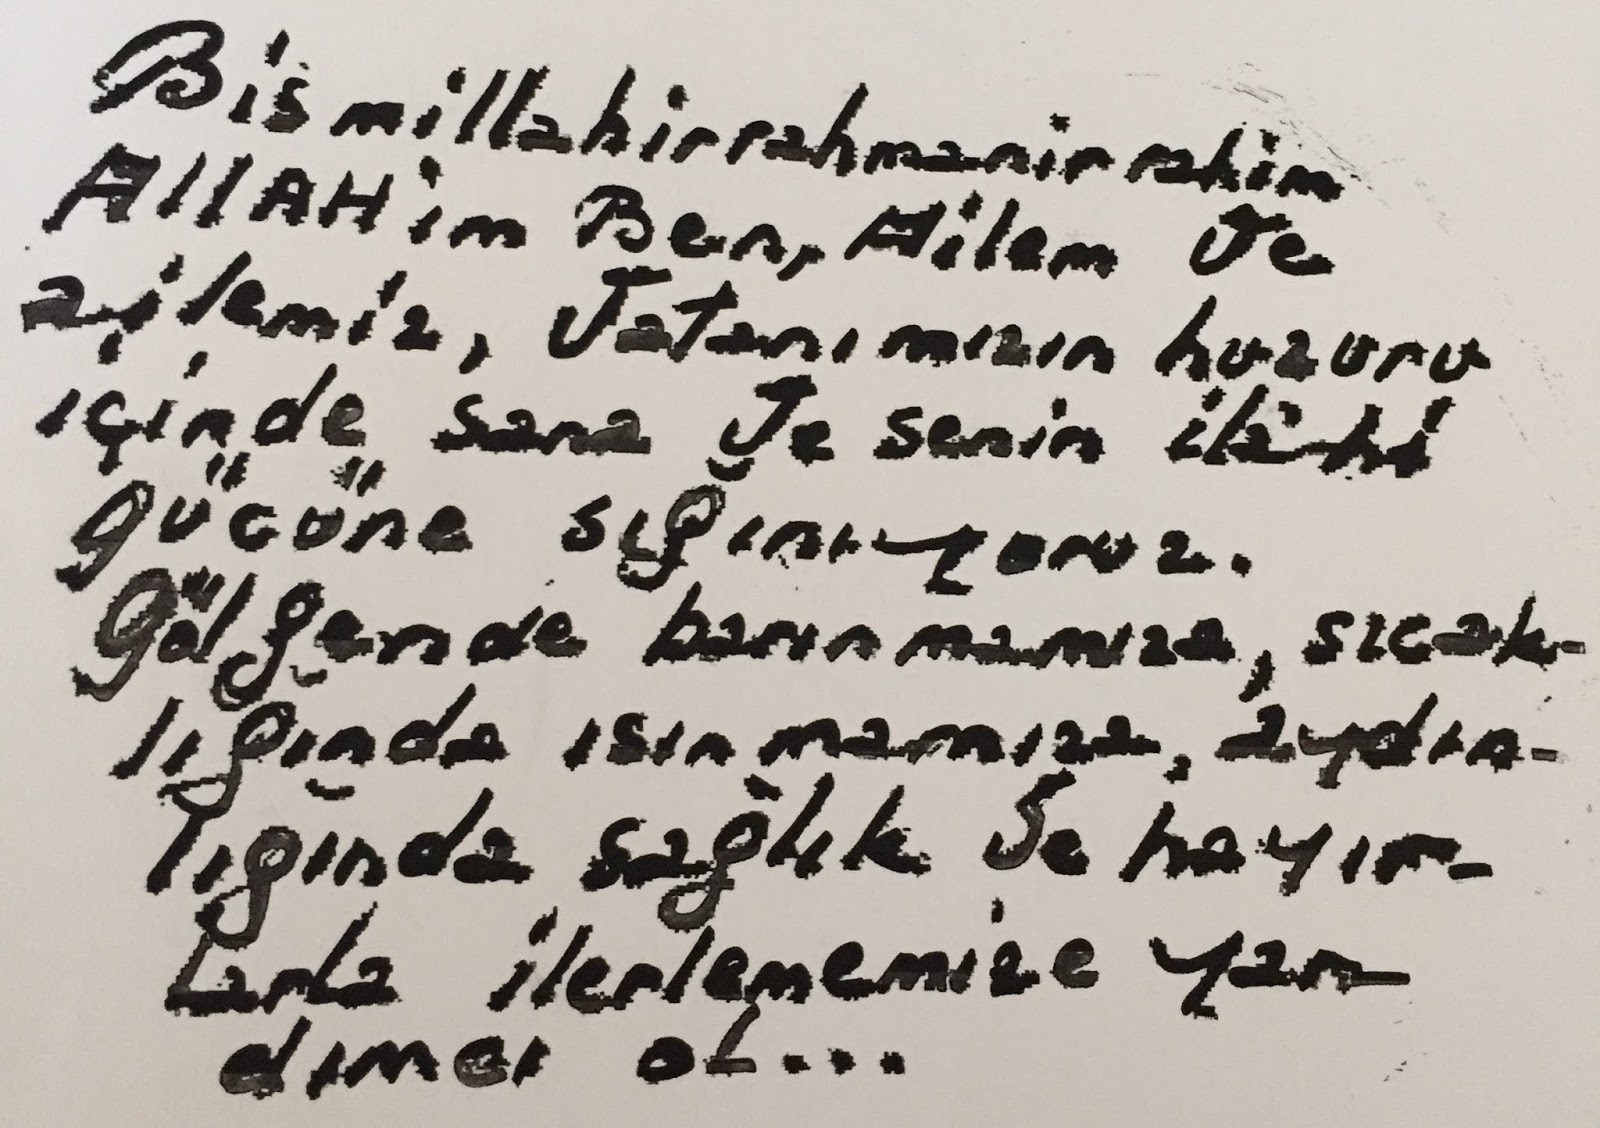 Bismillahirrahmanirrahim
ALLAH'im Ben, Ailem Ve
ailemiz, Vatanımızın huzuru
içinde sana Ve senin ilâhi
gücüne sığınıyoruz.
Gölgende barınmamıza, sıcak-
lığında ısınmamıza, aydın-
lığında sağlık Ve hayır-
larla ilerlememize yar-
dımcı ol...